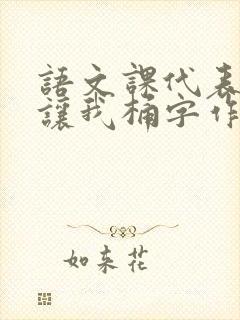 語文課代表
讓我桶字作
如来花